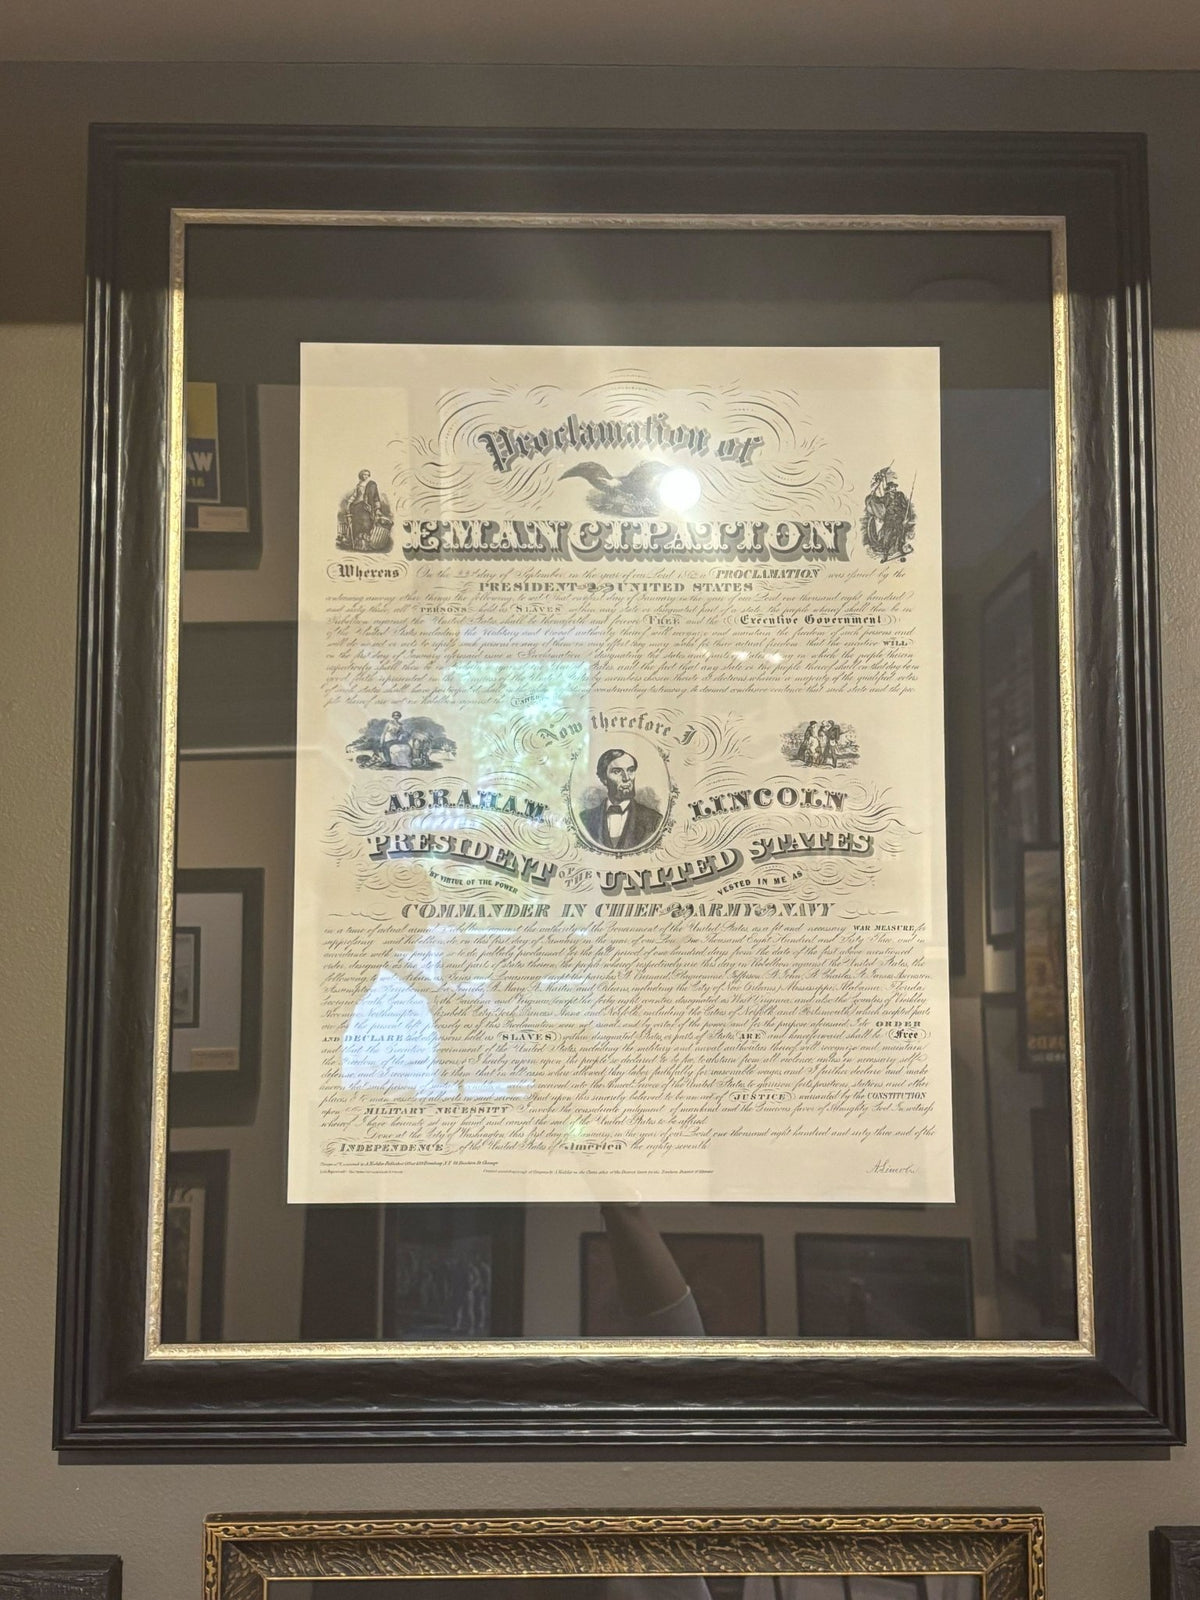 Proclamation of
EMANCIPATION
Whereas On the 22nd day of September in the year of our Lord 1862 a PROCLAMATION was issued by the
PRESIDENT OF THE UNITED STATES
containing among other things the following to wit: That on the 1st day of January in the year of our Lord one thousand eight hundred
and sixty three, all PERSONS held as SLAVES within any state or designated part of a state the people whereof shall then be in
Rebellion against the United States shall be thenceforth and forever FREE and the Executive Government
of the United States including the Military and Naval authority thereof will recognize and maintain the freedom of such persons and
will do no act or acts to repress such persons or any of them in any effort they may make for their actual freedom that the executive WILL
on the 1st day of January aforesaid issue a Proclamation designating the states and parts of states any in which the people therein
respectively shall then be in rebellion against the United States and the fact that any state or the people thereof shall on that day be in
good faith represented in the Congress of the United States by members chosen thereto at elections wherein a majority of the qualified voters
of such states shall have participated shall in the countervailing testimony be deemed conclusive evidence that such state and the peo-
ple thereof are not in Rebellion against the UNITED
Now therefore I
ABRAHAM LINCOLN
PRESIDENT OF THE UNITED STATES
BY VIRTUE OF THE POWER VESTED IN ME AS
COMMANDER IN CHIEF OF THE ARMY AND NAVY
in a time of actual armed the authority of the Government of the United States, as a fit and necessary WAR MEASURE for
suppressing said Rebellion, do on this first day of January in the year of our Lord One Thousand Eight Hundred and Sixty Three, and in
accordance with my purpose so to do publicly proclaimed for the full period of one hundred days from the date of the first above mentioned
order, designate as the states and parts of states therein, the people whereof respectively are this day in Rebellion against the United States, the
following to wit: Arkansas, Texas and Louisiana except the parishes St. Bernard, Plaquemine, Jefferson, St. John, St. Charles, St. James, Ascension,
Assumption, Terrebonne, St. Mary, St. Martin and Orleans, including the City of New Orleans, Mississippi, Alabama, Florida,
Georgia, South Carolina, North Carolina and Virginia, except the forty eight counties designated as West Virginia and also the Counties of Berkley,
Accomac, Northampton, Elizabeth City, York, Princess Anne and Norfolk, including the Cities of Norfolk and Portsmouth, which excepted parts
are for the present left precisely as if this Proclamation were not issued, and by virtue of the power and for the purpose aforesaid I do ORDER
AND DECLARE that all persons held as SLAVES within designated States or parts of States ARE and henceforward shall be Free
and that the Executive Government of the United States, including the military and naval authorities thereof will recognize and maintain
the freedom of the said persons. I hereby enjoin upon the people so declared to be free, to abstain from all violence, unless in necessary self-
defense, and I recommend to them that in all cases where allowed, they labor faithfully for reasonable wages, and I further declare and make
known that such persons of received into the Armed Service of the United States to garrison forts, positions, stations and other
places to man vessels of all sorts in said service. And upon this sincerely believed to be an act of JUSTICE warranted by the CONSTITUTION
upon MILITARY NECESSITY I invoke the considerate judgment of mankind and the Gracious favor of Almighty God. In witness
whereof I have hereunto set my hand and caused the seal of the United States to be affixed.
Done at the City of Washington this first day of January, in the year of our Lord one thousand eight hundred and sixty three and of the
INDEPENDENCE of the United States of America the eighty seventh.
A. Lincoln